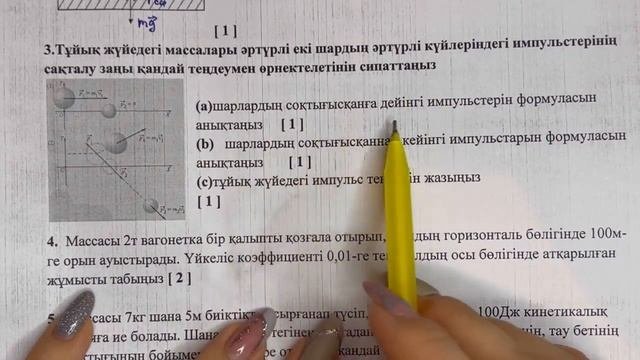 mg
[ 1 ]
3.Тұйық жүйедегі массалары әртүрлі екі шардың әртүрлі күйлеріндегі импульстерінің
сақталу заңы қандай теңдеумен өрнектелетінін сипаттаңыз
(a)шарлардың соқтығысқанға дейінгі импульстерін формуласын
анықтаңыз [ 1 ]
(b) шарлардың соқтығысқанна кейінгі импульстарын формуласын
анықтаңыз [ 1 ]
(c)тұйық жүйедегі импульс жазыңыз
[ 1 ]
4. Массасы 2т вагонетка бір қалыпты қозғала отырып, горизонталь бөлігінде 100м-
ге орын ауыстырады. Үйкеліс коэффициенті 0,01-ге осы бөлігінде атқарылған
жұмысты табыңыз [ 2 ]
7кг шана 5м сырғанап түсіп, 100Дж кинетикалық
ие болады. тау бетінің